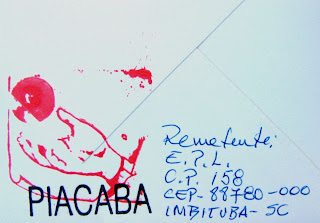 PIACABA
Remetente:
E.P.L.
C.P. 158
CEP-88780-000
IMBITUBA-SC